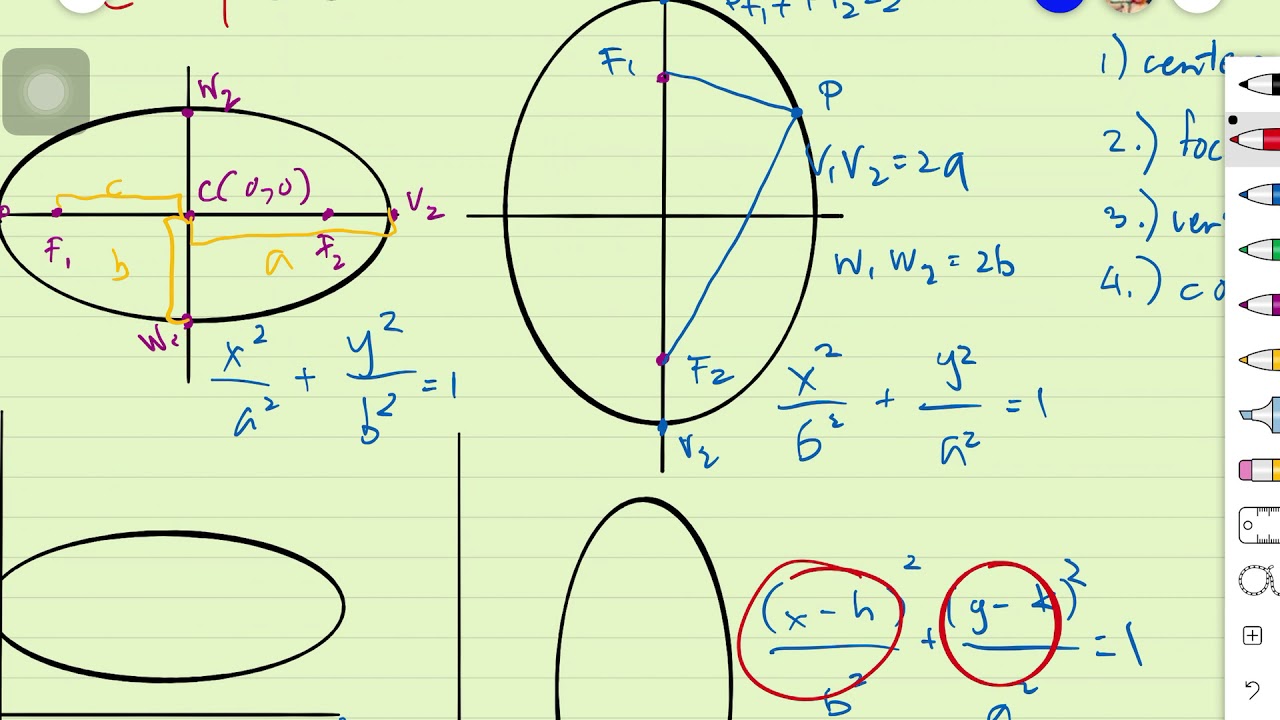 W₂
C(0,0)
c
V₂
F₁
F₂
b
a
x²/a² + y²/b² = 1
F₁
P
V₁V₂ = 2a
W₁W₂ = 2b
F₂
V₂
x²/b² + y²/a² = 1
1) cente
2.) foc
3.) ver
4.) co
(x-h)²/b² + (y-k)²/a² = 1